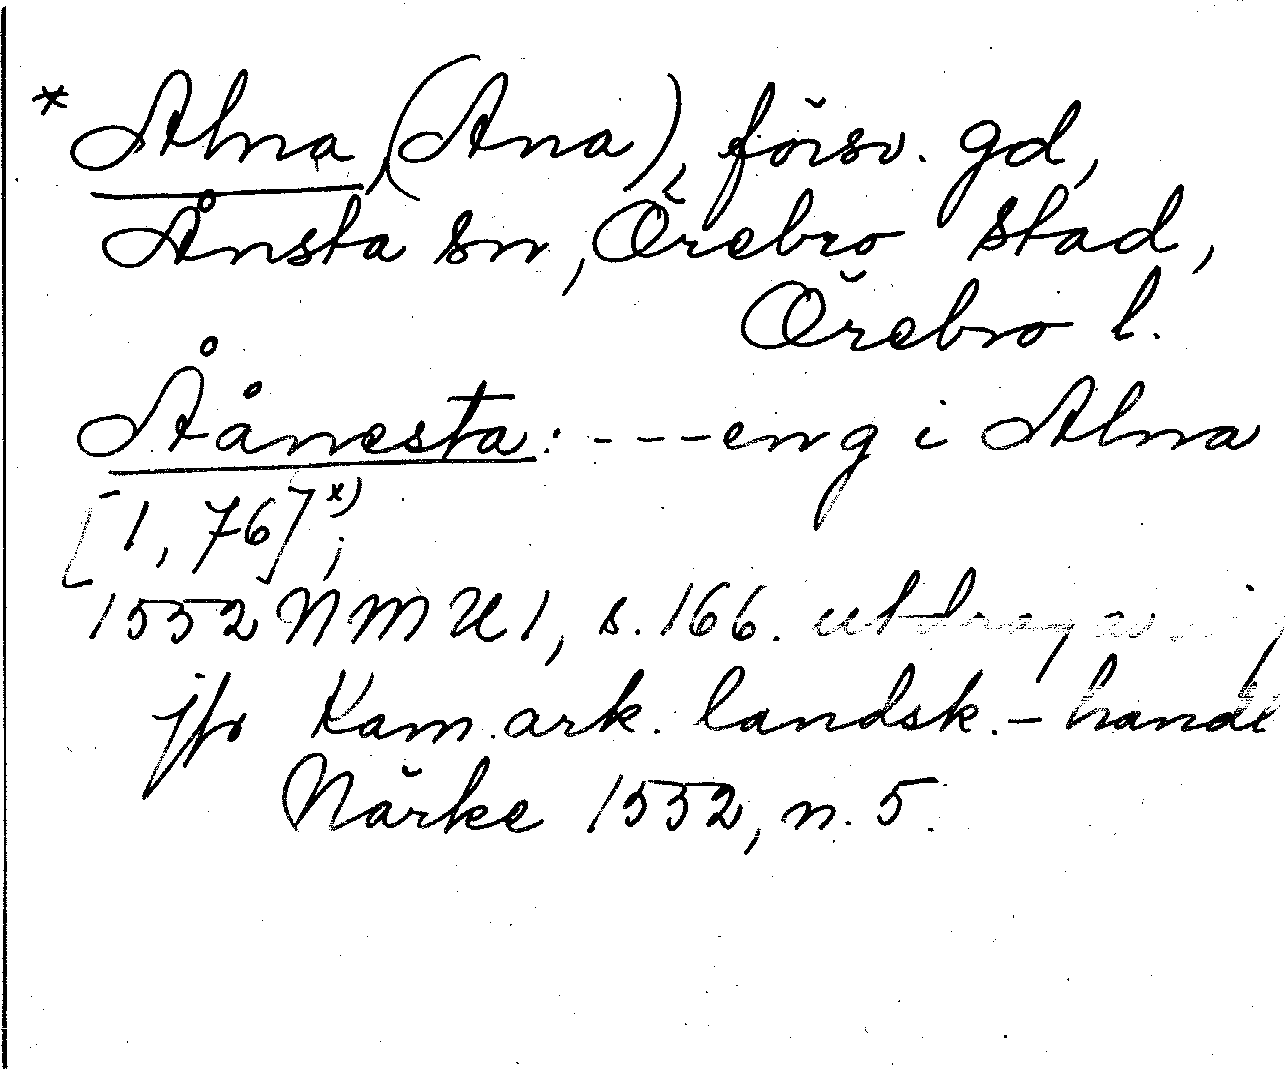 * Alna (Ana), försv. gd,
Ånsta sn, Örebro stad,
Örebro l.
Åånesta: - - - eng i Alna
[1, 76]x);
1552 NMU 1, s. 166. utdrag av
jfr Kam.ark. landsk. - handl
Närke 1552, n. 5.